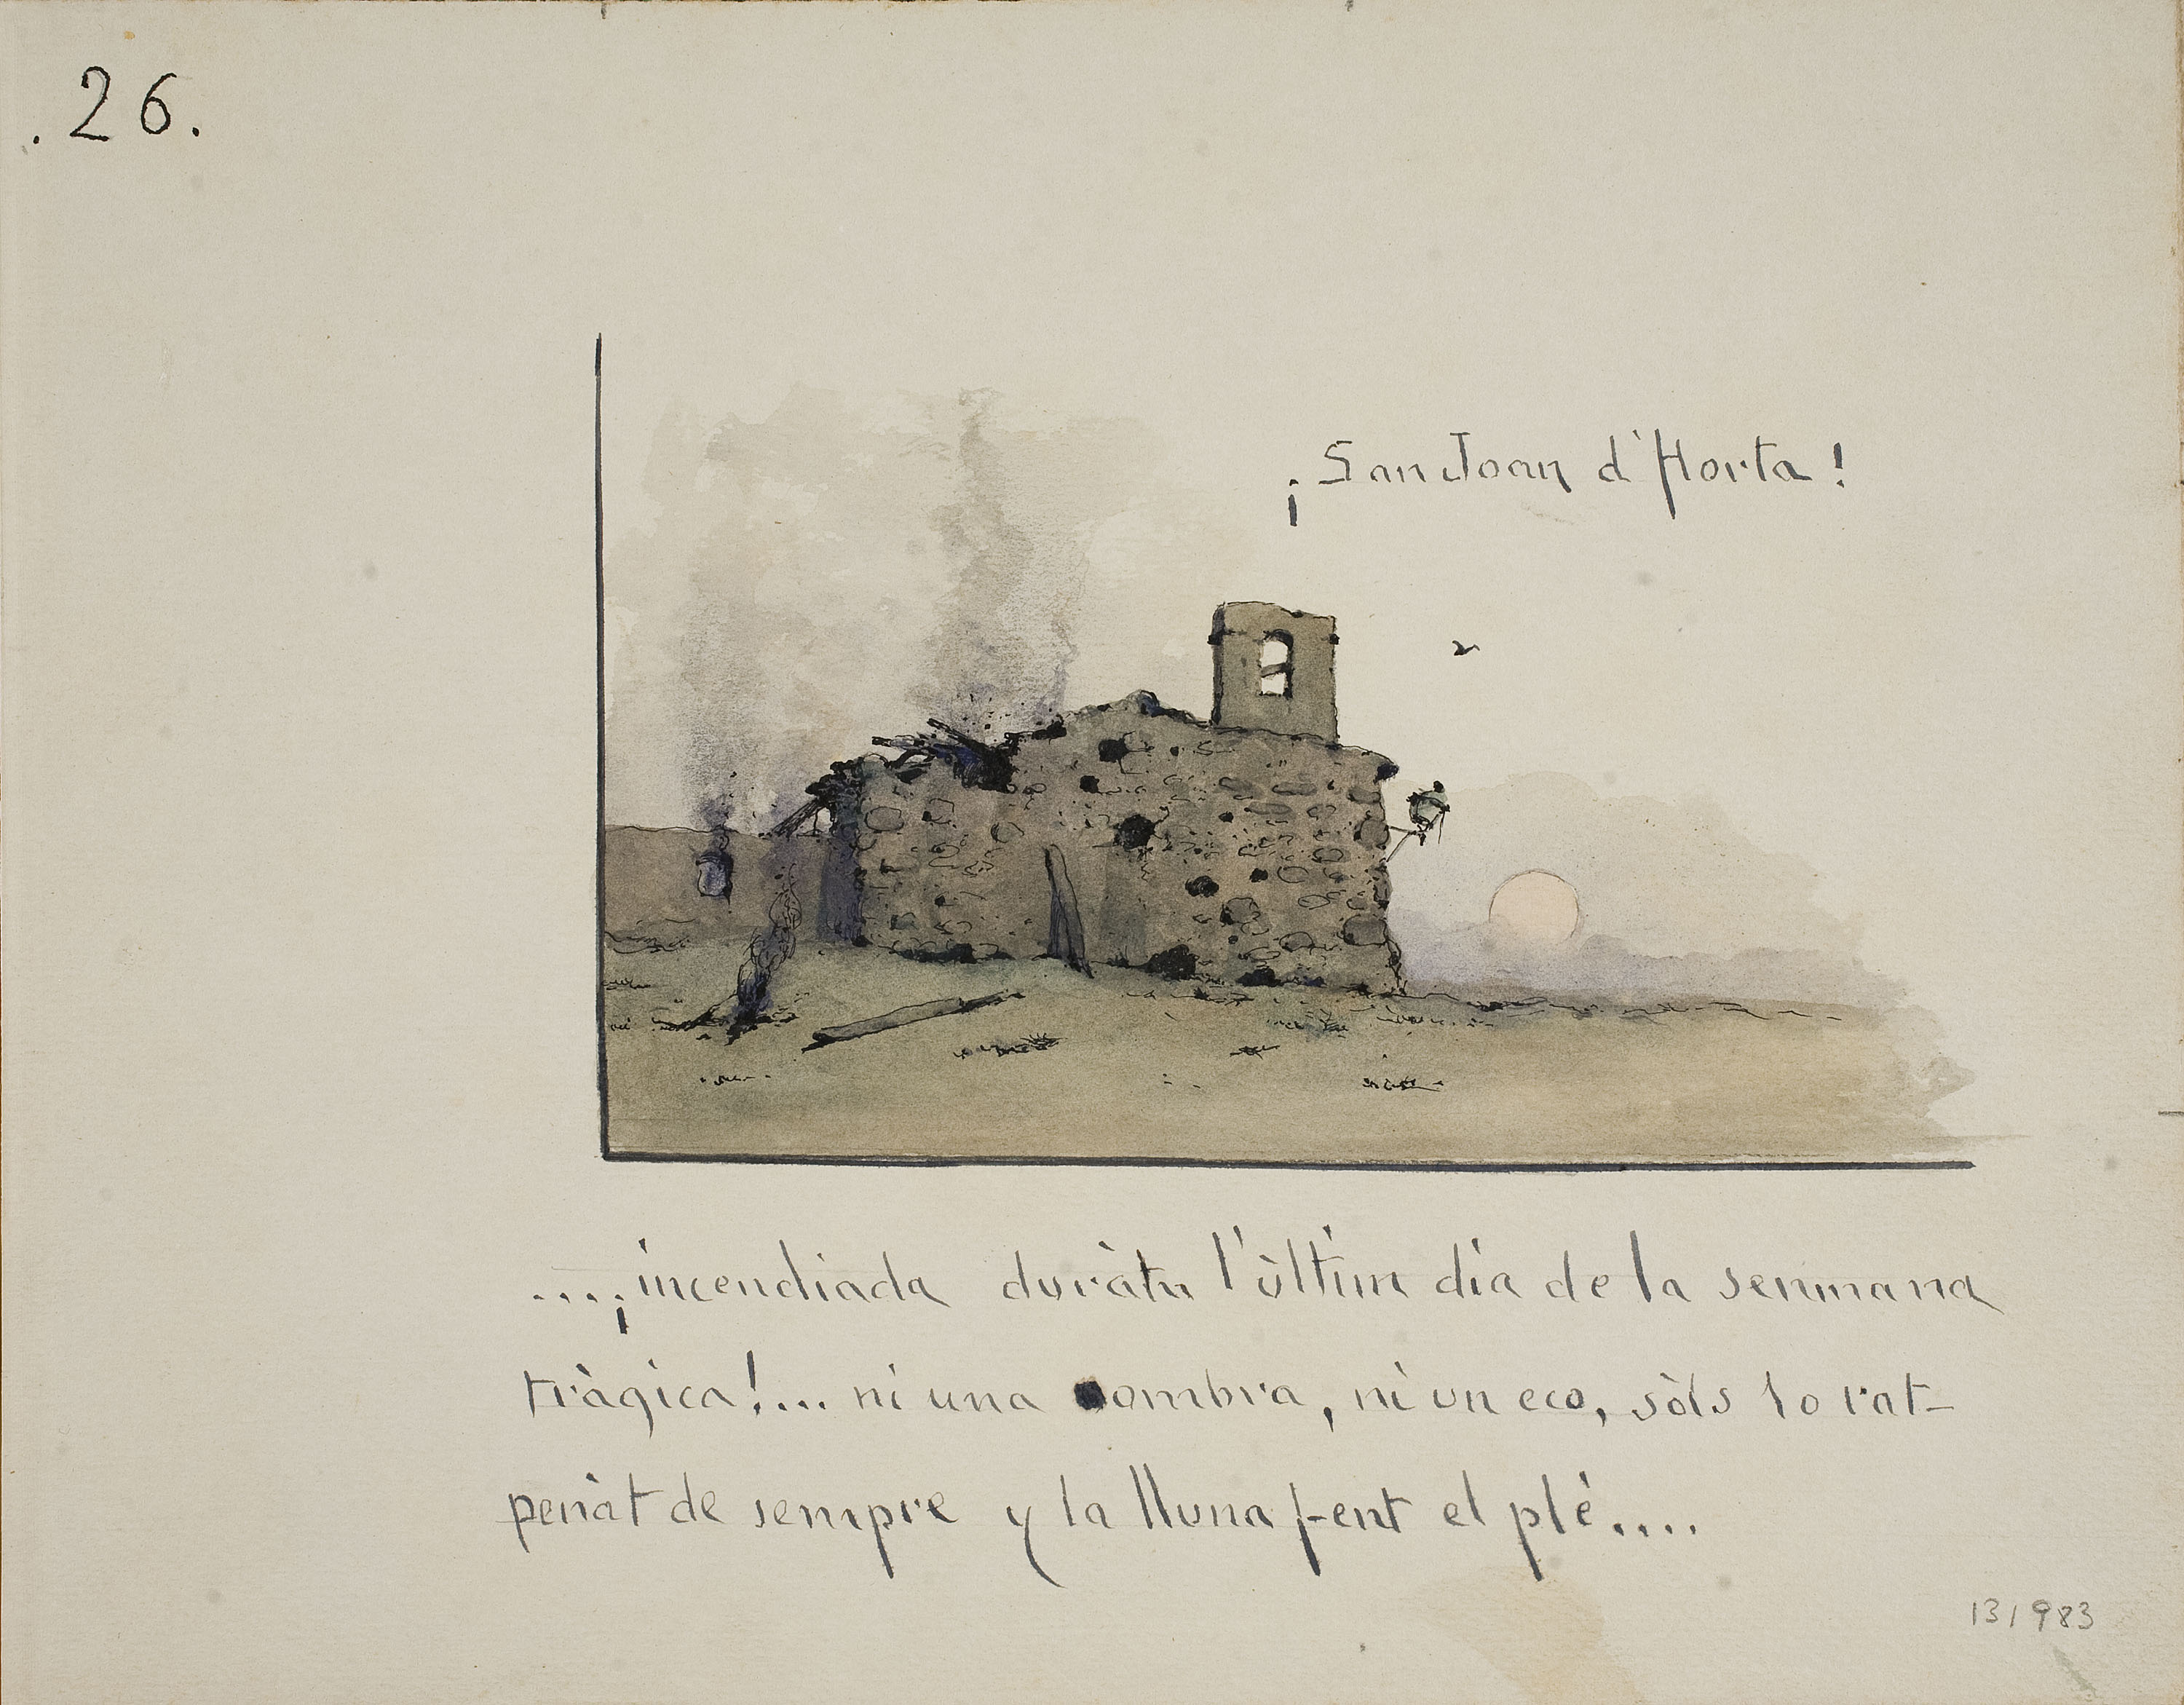 .26.
¡San Joan d'Horta!
....¡incendiada duràtn l'ùltim dia de la senmana
tràgica!... ni una sombra, ni un eco, sòls lo rat-
penàt de sempre y la lluna fent el plé....
131983